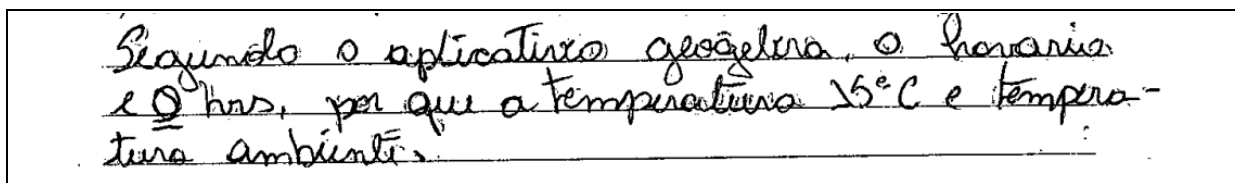 Segundo o aplicativo geogebra, o horario
e 0 hrs, por que a temperatura 15°C e tempera-
tura ambiente.